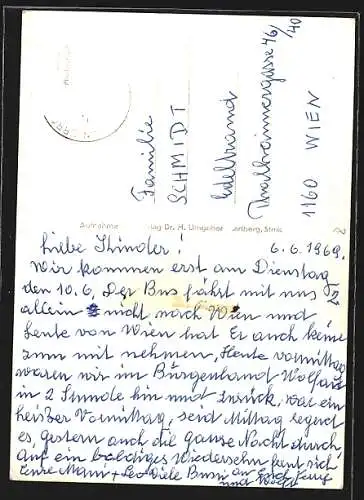 Familie
SCHMIDT
Edeltraud
Thalhaimergasse 46/40
1160 WIEN
Aufnahme Verlag Dr. H.
6. 6. 1969.
Liebe Kinder!
Wir kommen erst am Dienstag
den 10.6. Der Bus fährt mit uns
allein nicht nach Wien und
Leute von Wien hat Er auch keine
zum mit nehmen, Heute vormittag
waren wir im Burgenland
in 2 Stunde hin und zurück, war ein
heißer Vormittag, seid Mittag regnet
es, gestern auch die ganze Nacht durch,
Auf ein baldiges Wiedersehn freut sich
Eure Mami + Leo Viele Bussi an
und